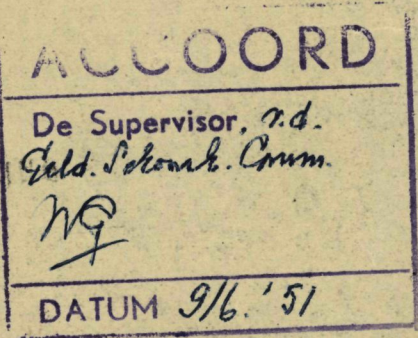 ACCOORD
De Supervisor, v.d.
Geld. Schoonh. Comm.
WG
DATUM 9/6.'51